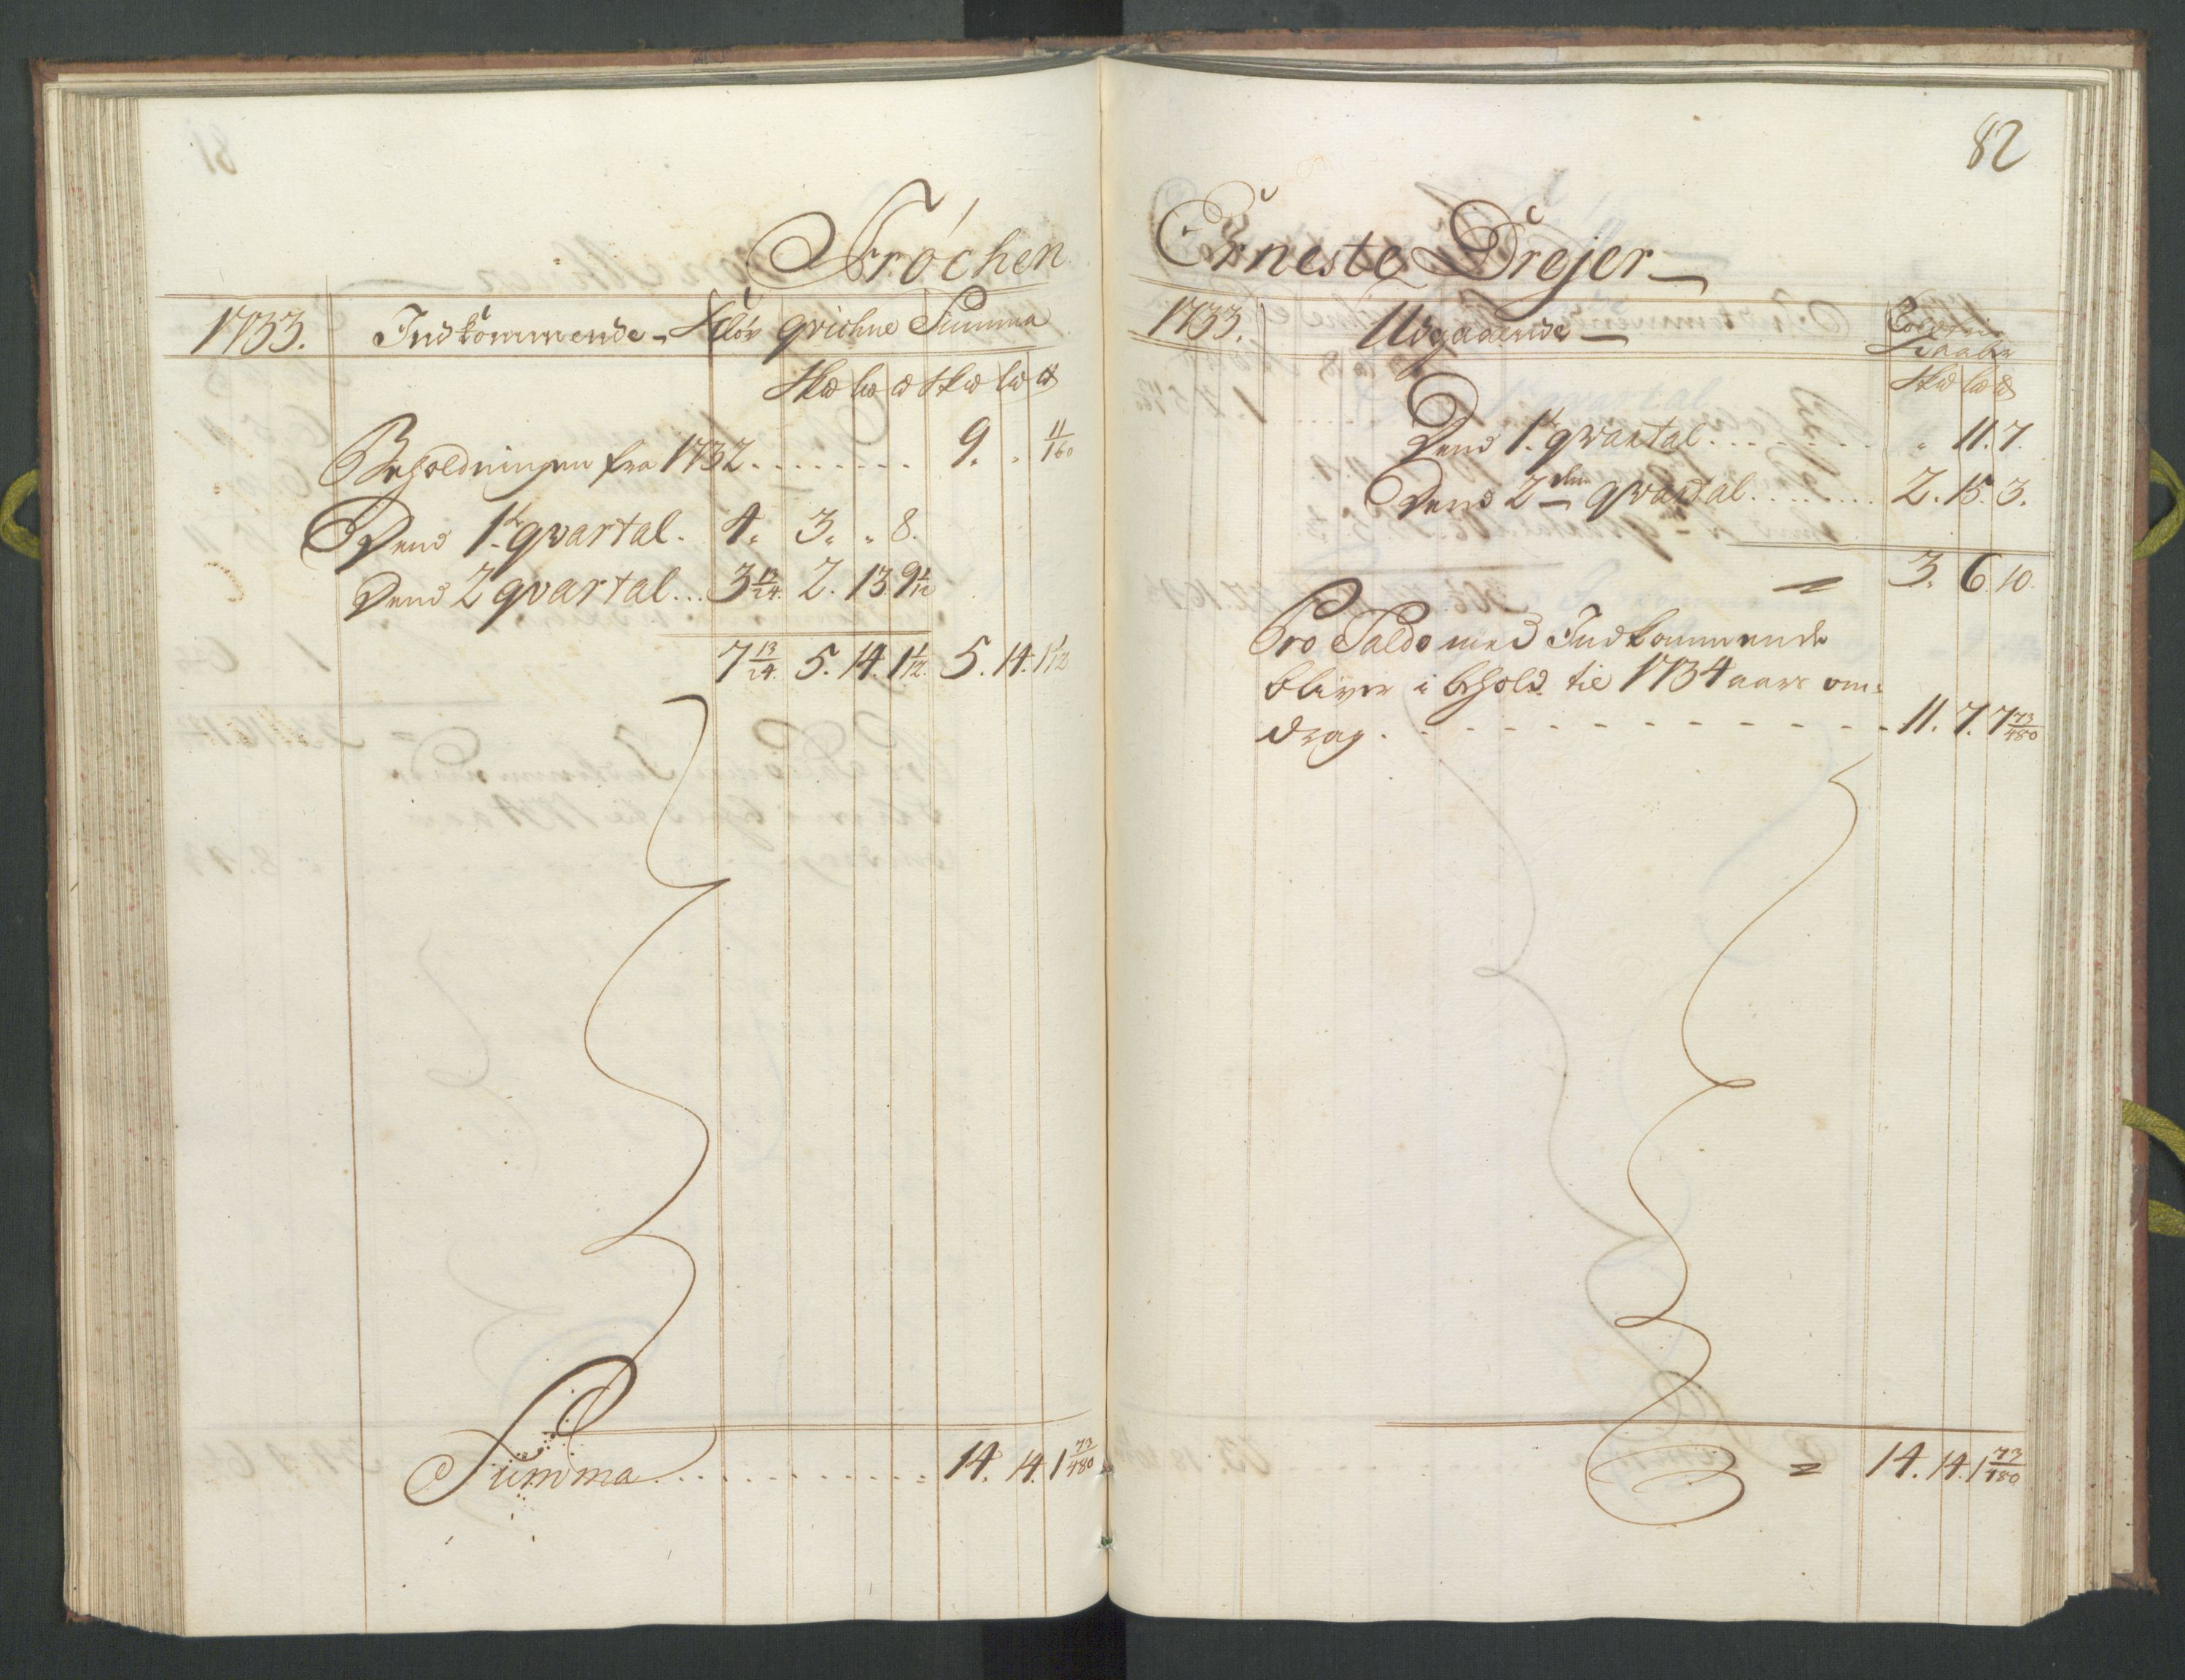 Frøchen
1733. Indkommende - Sølv qvichne Summa
Beholdningen fra 1732 . . . . . . . . 9. „ 11/160
Dend 1ste qvartal. 4. 3. „ 8.
Dend 2 qvartal... 3 13/24. 2. 13. 9 1/12
7 13/24. 5. 14. 1 1/12. 5. 14. 1 1/12
Summa . . . . . . . . . . . 14. 14. 1 73/480
82
Erneste Drejer
1733. Udgaaende
Dend 1ste qvartal . . . . . . . „ 11. 7.
Dend 2den qvartal . . . . . . . 2. 15. 3.
= 3. 6. 10.
Pro Saldo med Indkommende
bliver i behold til 1734 aars om=
drag . . . . . . . . . . . . . 11. 7. 7 73/480
= 14. 14. 1 73/480